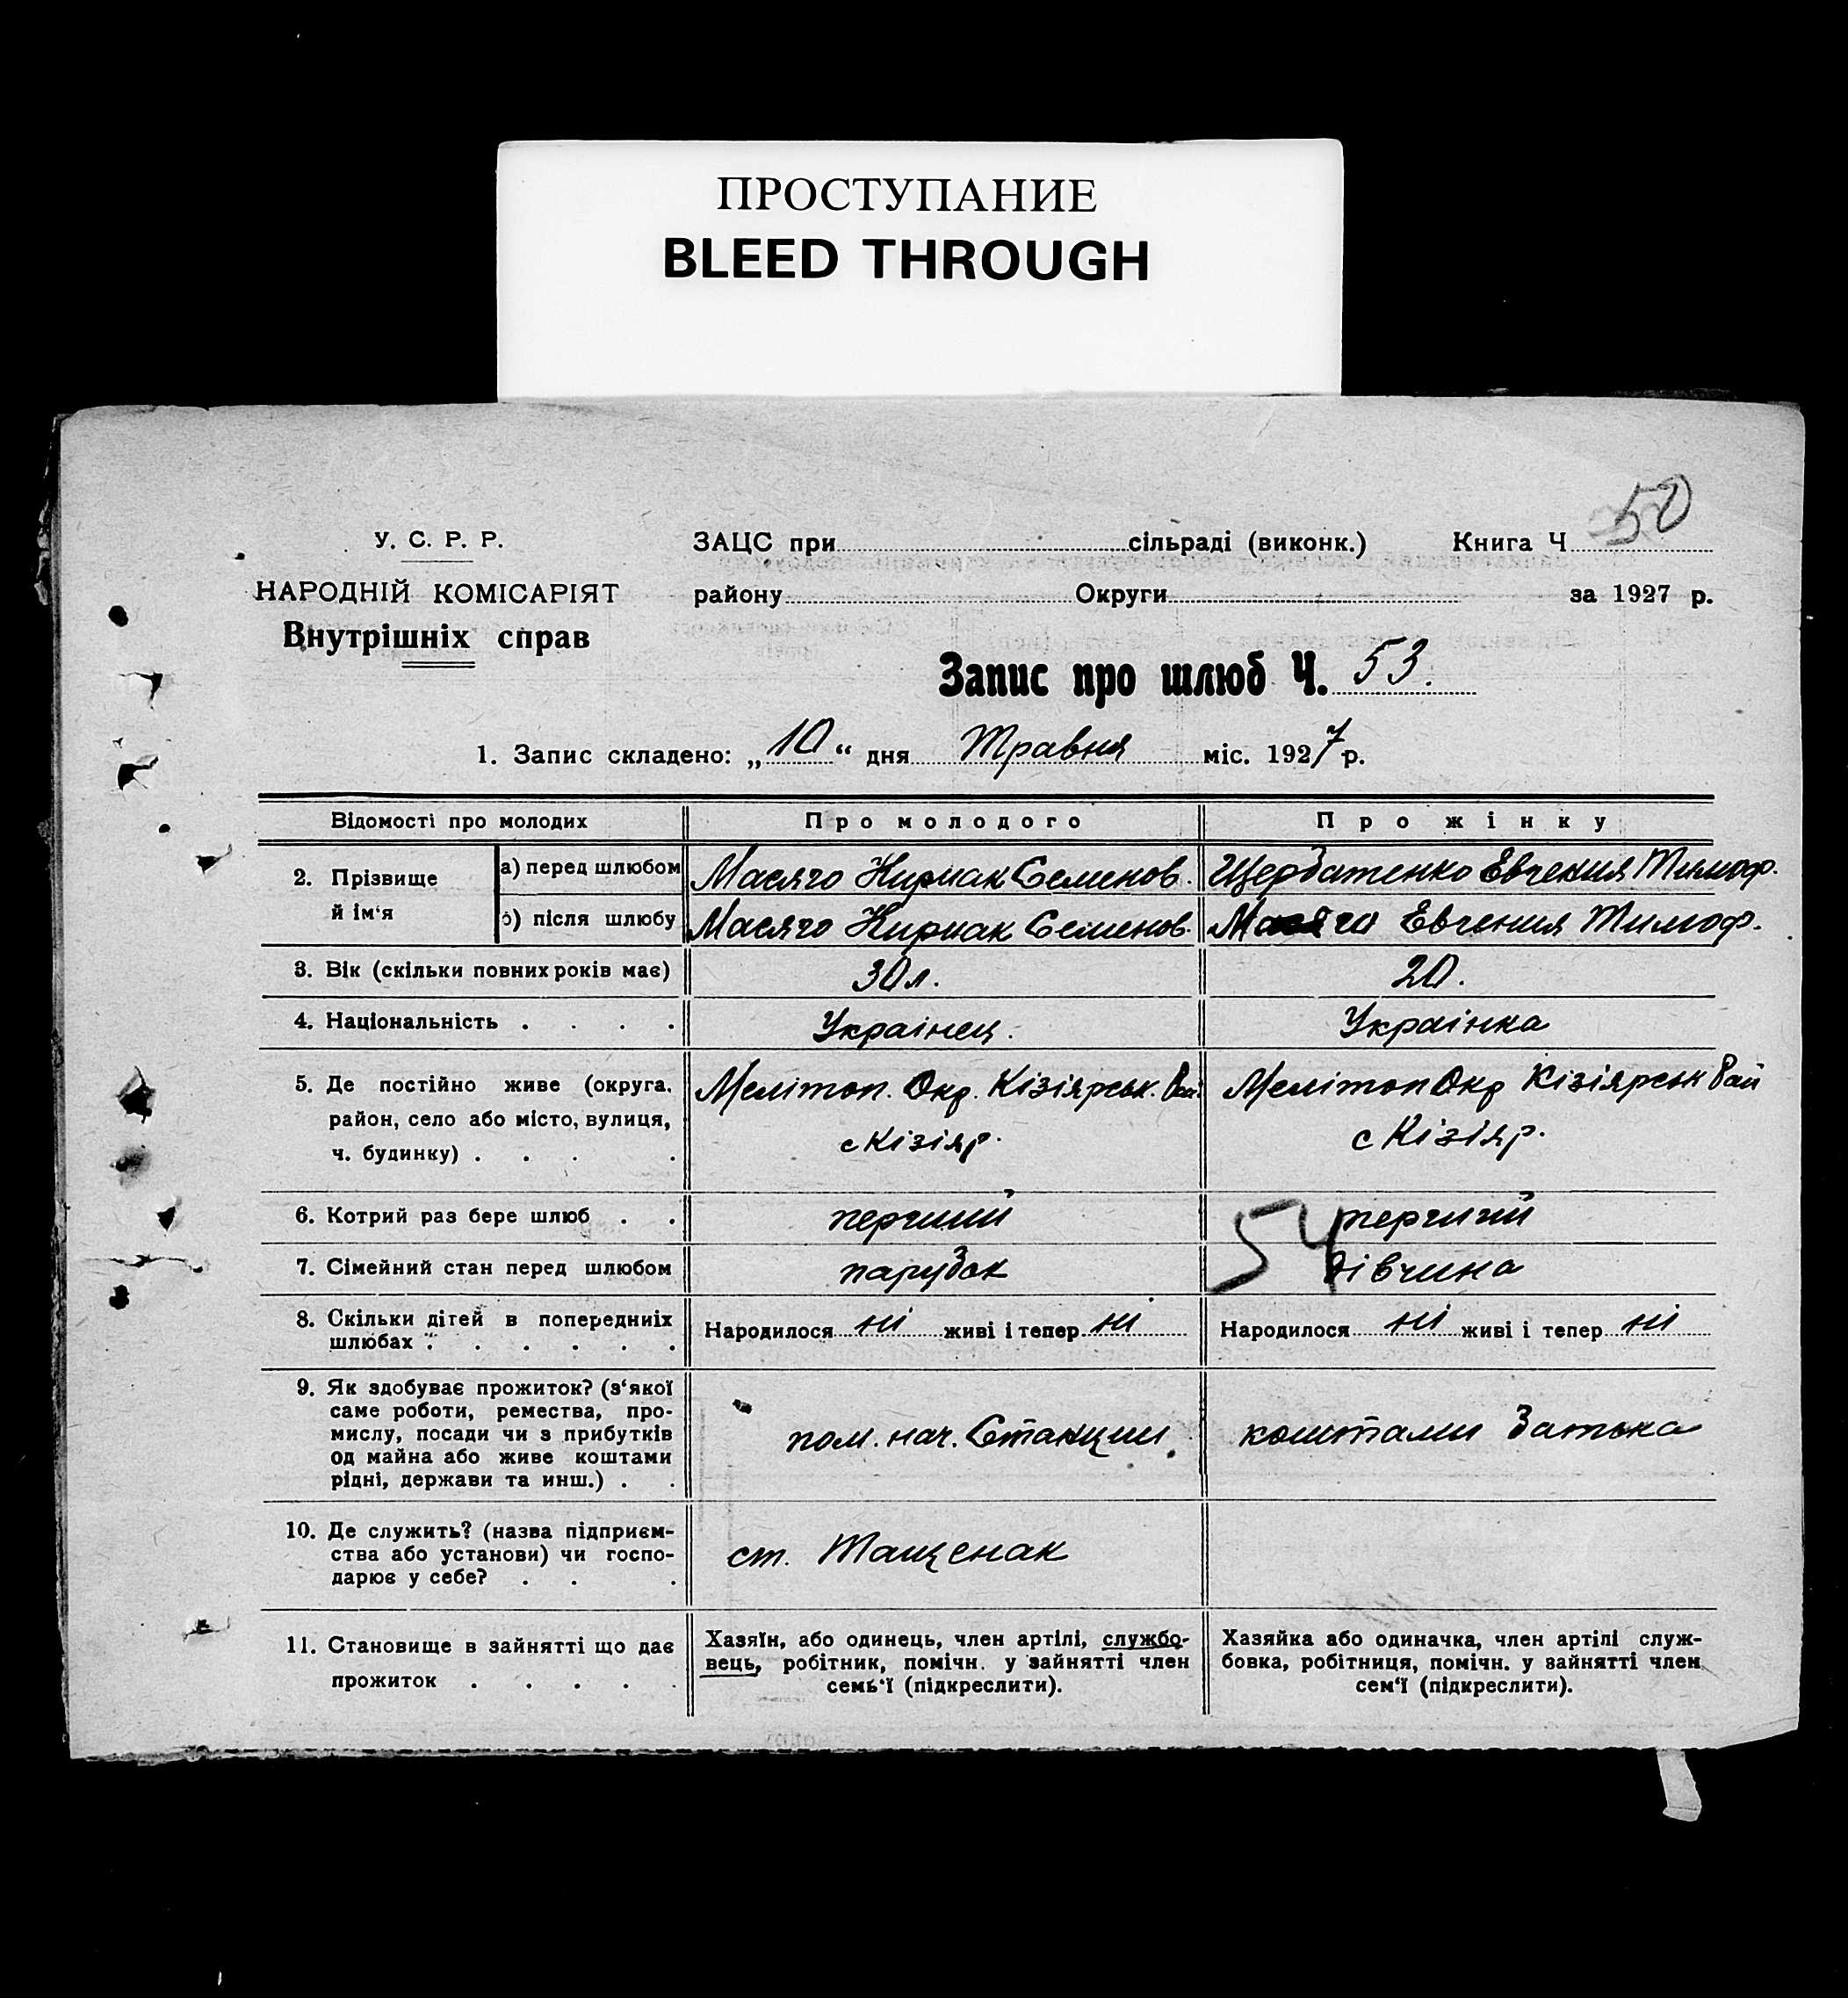 ПРОСТУПАНИЕ
BLEED THROUGH
50
У. С. Р. Р.
НАРОДНІЙ КОМІСАРІЯТ
Внутрішніх справ
ЗАЦС при сільраді (виконк.) Книга Ч
району Округи за 1927 р.
Запис про шлюб Ч. 53.
1. Запис складено: „10“ дня Травня міс. 1927 р.
Відомості про молодих Про молодого Про жінку
2. Прізвище й ім‘я
а) перед шлюбом Масяго Кириак Семенов. Щербатенко Евгения Тимоф.
б) після шлюбу Масяго Кириак Семенов. Масяго Евгения Тимоф.
3. Вік (скільки повних років має) 30 л. 20.
4. Національність . . . . Украінец. Украінка
5. Де постійно живе (округа, район, село або місто, вулиця, ч. будинку) . . . .
Мелітоп. Окр. Кізіярськ. Рай.
с Кізіяр.
Мелітоп Окр Кізіярськ Рай
с Кізіяр.
6. Котрий раз бере шлюб . . перший перший
54
7. Сімейний стан перед шлюбом парубок дівчина
8. Скільки дітей в попередниіх шлюбах . . . . . .
Народилося ні живі і тепер ні
Народилося ні живі і тепер ні
9. Як здобуває прожиток? (з‘якої
саме роботи, ремества, про-
мислу, посади чи з прибутків
од майна або живе коштами
рідні, держави та инш.) . .
пом. нач. Станции.
коштами батька
10. Де служить? (назва підприєм-
ства або установи) чи госпо-
дарює у себе? . . .
ст. Тащенак
11. Становище в зайнятті що дає
прожиток . . . . .
Хазяїн, або одинець, член артілі, службо-
вець, робітник, помічн. у зайнятті член
семь‘ї (підкреслити).
Хазяйка або одиначка, член артілі служ-
бовка, робітниця, помічн. у зайнятті член
сем‘ї (підкреслити).